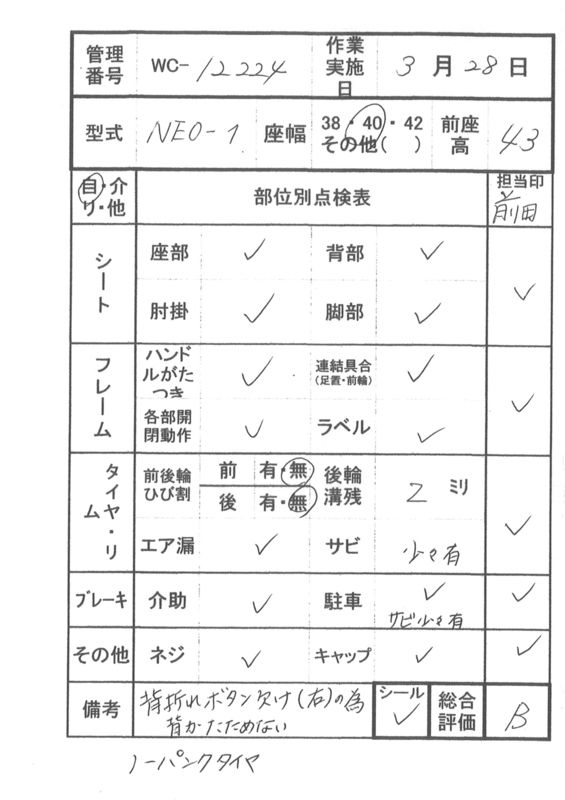 管理番号 WC-12224 作業実施日 3月28日
型式 NEO-1 座幅 38・40・42 その他( ) 前座高 43
自・介 リ・他 部位別点検表 担当印 前田
シート 座部 ✓ 背部 ✓ ✓
肘掛 ✓ 脚部 ✓
フレーム ハンドルがたつき ✓ 連結具合(足置・前輪) ✓ ✓
各部開閉動作 ✓ ラベル ✓
タイヤ・リム 前後輪ひび割 前 有・無 後輪溝残 2 ミリ ✓
後 有・無
エア漏 ✓ サビ 少々有
ブレーキ 介助 ✓ 駐車 ✓ サビ少々有 ✓
その他 ネジ ✓ キャップ ✓ ✓
備考 背折れボタン欠け(右)の為 シール ✓ 総合評価 B
背かたためない
ノーパンクタイヤ